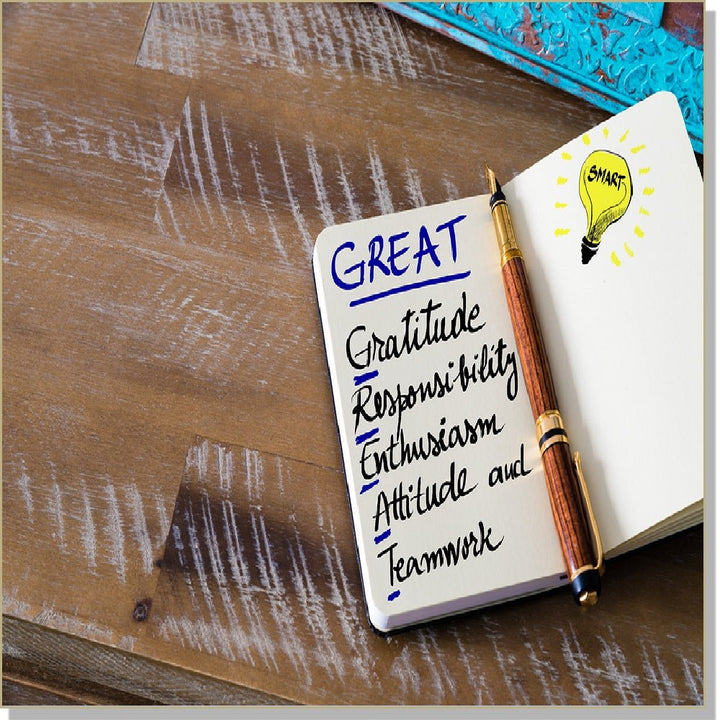 GREAT
Gratitude
Responsibility
Enthusiasm
Attitude and
Teamwork
SMART